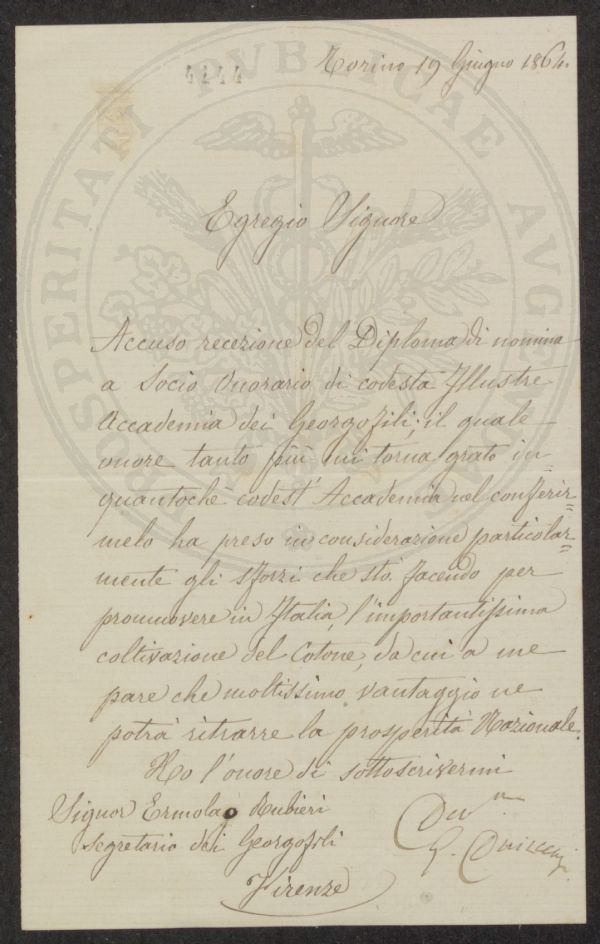 4144
Torino 19 Giugno 1864.
PROSPERITATI PUBLICAE AUGENDAE
Egregio Signore
Accuso recezione del Diploma di nomina
a Socio Onorario di codesta Illustre
Accademia dei Georgofili; il quale
onore tanto più mi torna grato in=
quantochè codest' Accademia nel conferir=
melo ha preso in considerazione particolar=
mente gli sforzi che stò facendo per
promuovere in Italia, l'importantissima
coltivazione del Cotone, da cui a me
pare che moltissimo vantaggio ne
potrà ritrarre la prosperità Nazionale.
Ho l'onore di sottoscrivermi
Signor Ermolao Rubieri
segretario dei Georgofili
Firenze
G. Devincenzi